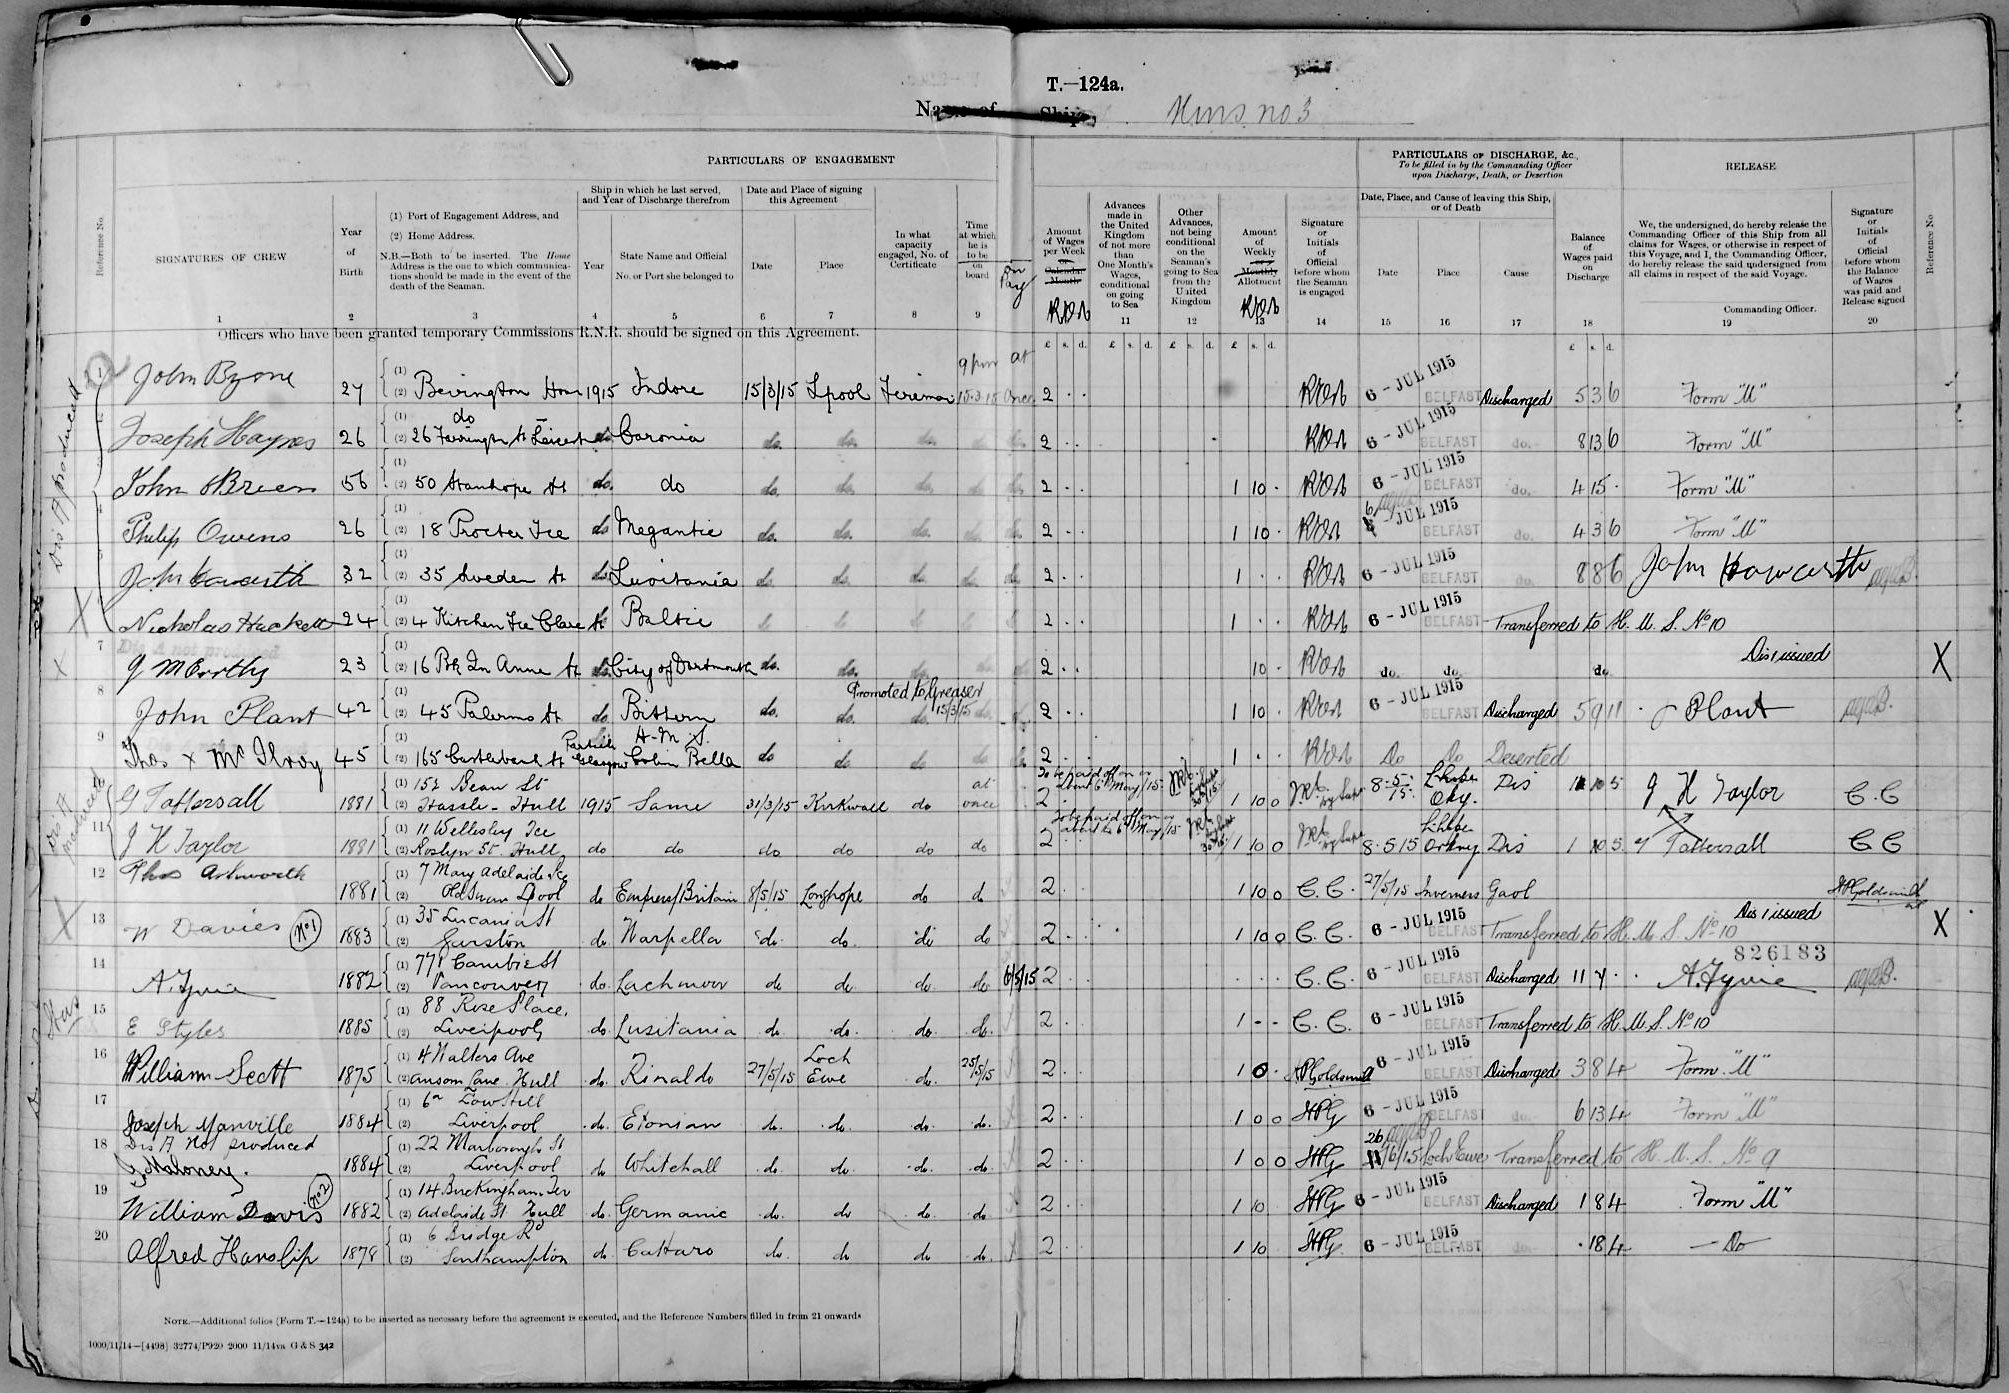 T.—124a.
Name of Ship, Hms no 3
PARTICULARS OF ENGAGEMENT
PARTICULARS OF DISCHARGE, &c.,
To be filled in by the Commanding Officer
upon Discharge, Death, or Desertion
RELEASE
Reference No
SIGNATURES OF CREW
Year of Birth
(1) Port of Engagement Address, and
(2) Home Address.
N.B.—Both to be inserted. The Home
Address is the one to which communica-
tions should be made in the event of the
death of the Seaman.
Ship in which he last served,
and Year of Discharge therefrom
Year
State Name and Official
No. or Port she belonged to
Date and Place of signing
this Agreement
Date
Place
In what
capacity
engaged, No. of
Certificate
Time
at which
he is
to be
on
board
in Pay
Amount
of Wages
per Week
or
Calendar
Month
Advances
made in
the United
Kingdom
of not more
than
One Month's
Wages,
conditional
on going
to Sea
Other
Advances,
not being
conditional
on the
Seaman's
going to Sea
from the
United
Kingdom
Amount
of
Weekly
or
Monthly
Allotment
Signature
or
Initials
of
Official
before whom
the Seaman
is engaged
Date, Place, and Cause of leaving this Ship,
or of Death
Date
Place
Cause
Balance
of
Wages paid
on
Discharge
We, the undersigned, do hereby release the
Commanding Officer of this Ship from all
claims for Wages, or otherwise in respect of
this Voyage, and I, the Commanding Officer,
do hereby release the said undersigned from
all claims in respect of the said Voyage.
Commanding Officer.
Signature
or
Initials
of
Official
before whom
the Balance
of Wages
was paid and
Release signed
Reference No
1 2 3 4 5 6 7 8 9 11 12 13 14 15 16 17 18 19 20
Officers who have been granted temporary Commissions R.N.R. should be signed on this Agreement.
£ s. d. £ s. d. £ s. d. £ s. d. £ s. d.
Dis A produced
1 John Byrne 27 (1) (2) 1915 Indore 15/3/15 Lpool Fireman 9 pm 15.3.15 at once 2 . . 6 - JUL 1915 BELFAST Discharged 5 3 6 Form "M"
Joseph Haynes 26 (1) do (2) do Caronia do. do. do. do 2 . . 6 - JUL 1915 BELFAST do. 8 13 6 Form "M"
John OBrien 56 (1) (2) 50 Stanhope St do. do do. do. do. do 2 . . 1 10 . 6 - JUL 1915 BELFAST do. 4 15 . Form "M"
Philip Owens 26 (1) (2) 18 Procter Tce do Megantic do. do. do. do 2 . . 1 10 . 6 - JUL 1915 BELFAST do. 4 3 6 Form "M"
John Haworth 32 (1) (2) 35 Sweden St do Lusitania do. do. do. do 2 . . 1 . . 6 - JUL 1915 BELFAST do. 8 8 6 John Haworth
X Nicholas Hackett 24 (1) (2) 4 Kitchen Tce Clare St Baltic 2 . . 1 . . 6 - JUL 1915 BELFAST Transferred to H. M. S. No 10
7 Dis A not produced
X J McCarthy 23 (1) (2) 16 Bk Qn Anne St do. City of Dortmouth do. do. do. do 2 . . 10 . do. do. do. Dis 1 issued X
8 John Plant 42 (1) (2) 45 Palermo St do. Bittern do. do. do. Promoted to Greaser 15/3/15 2 . . 1 10 . 6 - JUL 1915 BELFAST Discharged 5 9 11 J Plant
9 Thos x McIlroy 45 (1) (2) 165 Castlebank St Partick Glasgow H.M.S. Bella do do do do 2 . . 1 . . Do Do Deserted
10 G Tattersall 1881 (1) 152 Bean St (2) Hassle - Hull 1915 Same 31/3/15 Kirkwall do at once To be paid off on or about 6th May/15 2 1 10 0 8.5.15 Dis 10 5 J H Taylor C. C
11 J H Taylor 1881 (1) 11 Wellesley Tce (2) Roslyn St. Hull do do do do do do To be paid off on or about 6th May/15 2 1 10 0 8.5.15 Orkney Dis 1 10 5 G Tattersall C C
12 Thos Ashworth 1881 (1) 7 Mary Adelaide Tce (2) Old Swan Lpool do Empress/Britain 8/5/15 Longhope do do 2 . . 1 10 0 C. C. 27/5/15 Inverness Gaol HPGoldsmith
13 X W Davies (No 1) 1883 (1) 35 Lucania St (2) Garston do. Warpella do. do. do do 2 . . 1 10 0 C. C. 6 - JUL 1915 BELFAST Transferred to H. M. S. No 10 Dis 1 issued X
826183
14 A. Fyvie 1882 (1) 771 Cambie St (2) Vancouver do. Lachmoor do do. do. do 6/5/15 2 C. C. 6 - JUL 1915 BELFAST Discharged 11 7 . A. Fyvie
15 E Styles 1885 (1) 88 Rose Place, (2) Liverpool, do. Lusitania do. do. do. do. 2 1 - - C. C. 6 - JUL 1915 BELFAST Transferred to H. M. S. No 10
16 William Scott 1875 (1) 4 Walters Ave (2) Ansom Lane Hull do. Rinaldo 27/5/15 Loch Ewe do. 25/5/15 2 . . 1 0 . HPGoldsmith 6 - JUL 1915 BELFAST Discharged 3 8 4 Form "M"
17 Joseph Manville 1884 (1) 6a Low Hill (2) Liverpool do. Etonian do. do. do. do. 2 . . 1 0 0 HPG 6 - JUL 1915 BELFAST do. 6 13 4 Form "M"
18 Dis A not produced
J Maloney. 1884 (1) 22 Marborough St (2) Liverpool do Whitehall do. do. do. do. 2 . . 1 0 0 HPG 26/6/15 Loch Ewe Transferred to H. M. S. No 9
19 William Davis (No 2) 1882 (1) 14 Buckingham Ter (2) Adelaide St Hull do. Germanic do. do do. do 2 . . 1 10 HPG 6 - JUL 1915 BELFAST Discharged 1 8 4 Form "M"
20 Alfred Hanslip 1878 (1) 6 Bridge Rd (2) Southampton do Cattaro do. do do do. 2 . . 1 10 HPG 6 - JUL 1915 BELFAST do. . 18 4 — Do
NOTE.—Additional folios (Form T.—124a) to be inserted as necessary before the agreement is executed, and the Reference Numbers filled in from 21 onwards
1000/11/14—[4498] 32774/P920 2000 11/14va G & S 342